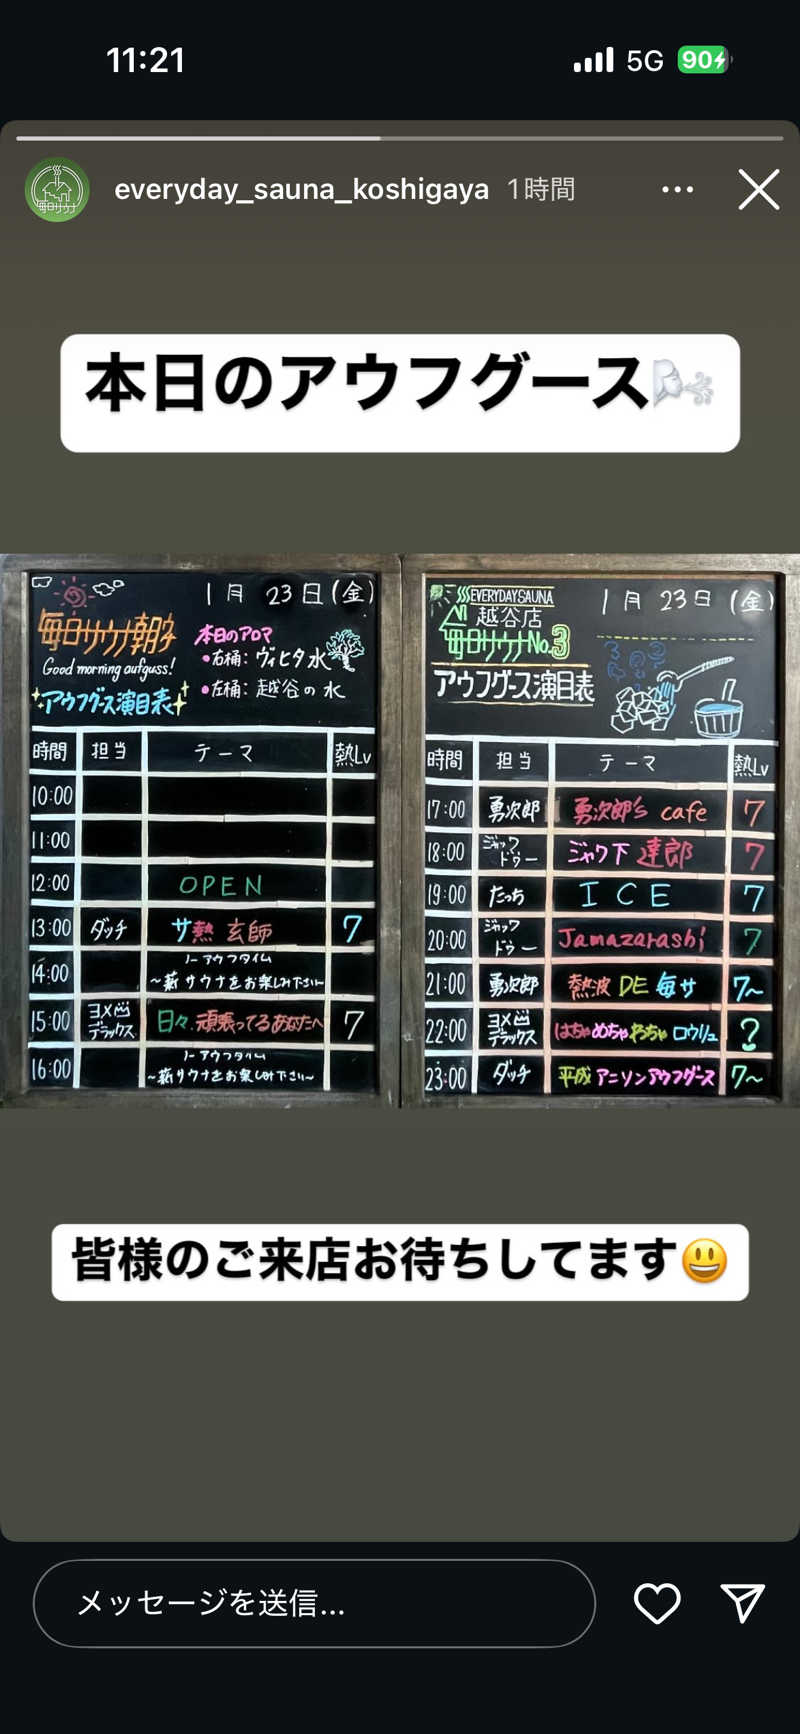 11:21
5G
90
everyday_sauna_koshigaya 1時間
本日のアウフグース🌬️
1月 23日(金)
毎日サウナ朝
Good morning aufguss!
アウフグース演目表
本日のアロマ
•右桶: ヴィヒタ水
•左桶: 越谷の水
時間 担当 テーマ 熱Lv
10:00
11:00
12:00 OPEN
13:00 ダッチ サ熱 玄師 7
14:00 ノーアウフタイム
~薪サウナをお楽しみ下さい~
15:00 ヨメ山デラックス 日々、頑張ってるあなたへ 7
16:00 ノーアウフタイム
~薪サウナをお楽しみ下さい~
EVERYDAY SAUNA
越谷店
毎日サウナNo.3
アウフグース演目表
1月 23日(金)
時間 担当 テーマ 熱Lv
17:00 勇次郎 勇次郎's cafe 7
18:00 ジャックドゥー ジャク下 達郎 7
19:00 たっち ICE 7
20:00 ジャックドゥー Jamazarashi 7
21:00 勇次郎 熱波 DE 毎サ 7~
22:00 ヨメ山デラックス はちゃめちゃわちゃロウリュ ?
23:00 ダッチ 平成アニソンアウフグース 7~
皆様のご来店お待ちしてます😃
メッセージを送信...